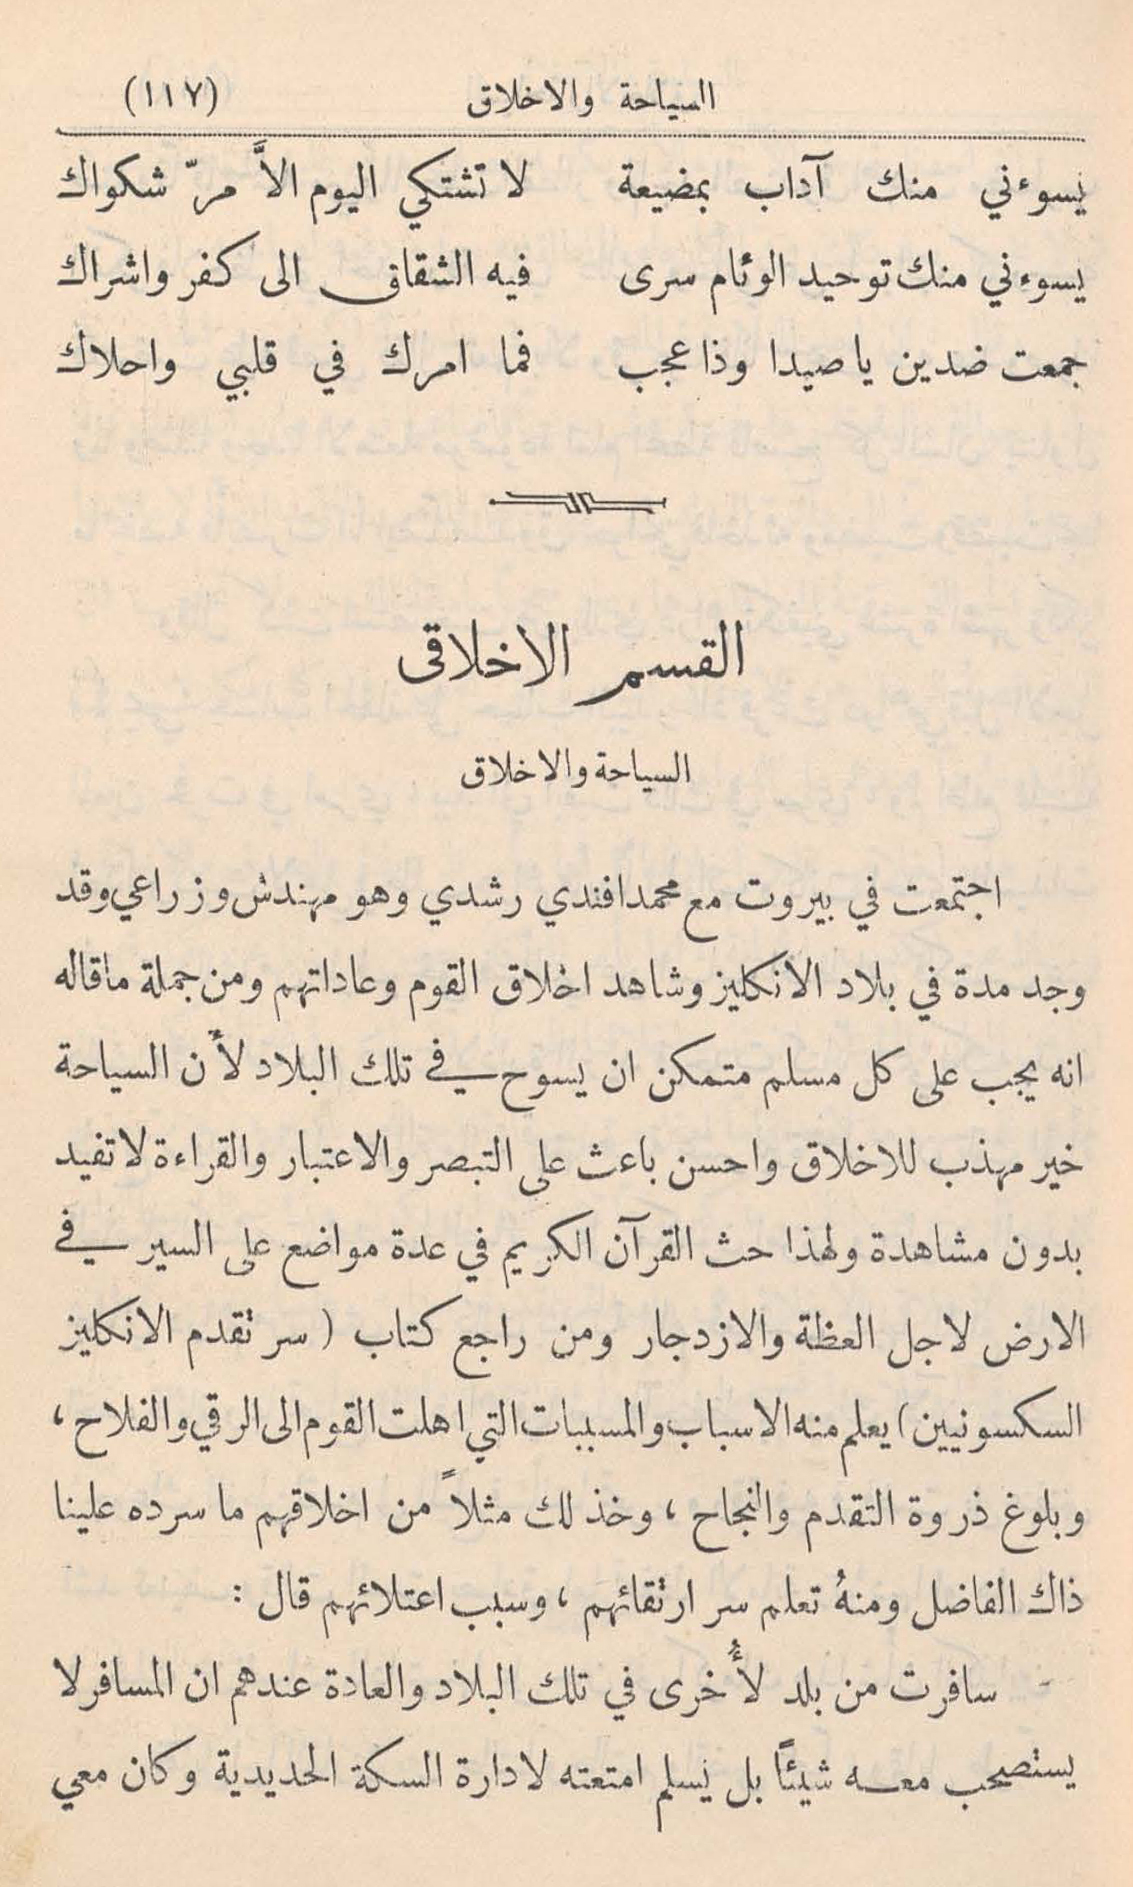 السياحة والاخلاق (١١٧)
يسوءني منك آداب بمضيعة لا تشتكي اليوم الاَّ مرّ شكواك
يسوءني منك توحيد الوئام سرى فيه الشقاق الى كفر واشراك
جمعت ضدين يا صيدا وذا عجب فما امرك في قلبي واحلاك
القسم الاخلاقى
السياحة والاخلاق
اجتمعت في بيروت مع محمد افندي رشدي وهو مهندش وزراعي وقد
وجد مدة في بلاد الانكليز وشاهد اخلاق القوم وعاداتهم ومن جملة ماقاله
انه يجب على كل مسلم متمكن ان يسوح في تلك البلاد لأن السياحة
خير مهذب للاخلاق واحسن باعث على التبصر والاعتبار والقراءة لا تفيد
بدون مشاهدة ولهذا حث القرآن الكريم في عدة مواضع على السير في
الارض لاجل العظة والازدجار ومن راجع كتاب ( سر تقدم الانكليز
السكسونيين ) يعلم منه الاسباب والمسببات التي اهلت القوم الى الرقي والفلاح ،
وبلوغ ذروة التقدم والنجاح ، وخذ لك مثلاً من اخلاقهم ما سرده علينا
ذاك الفاضل ومنهُ تعلم سر ارتقائهم ، وسبب اعتلائهم قال :
سافرت من بلد لأُخرى في تلك البلاد والعادة عندهم ان المسافر لا
يستصحب معه شيئاً بل يسلم امتعته لادارة السكة الحديدية وكان معي